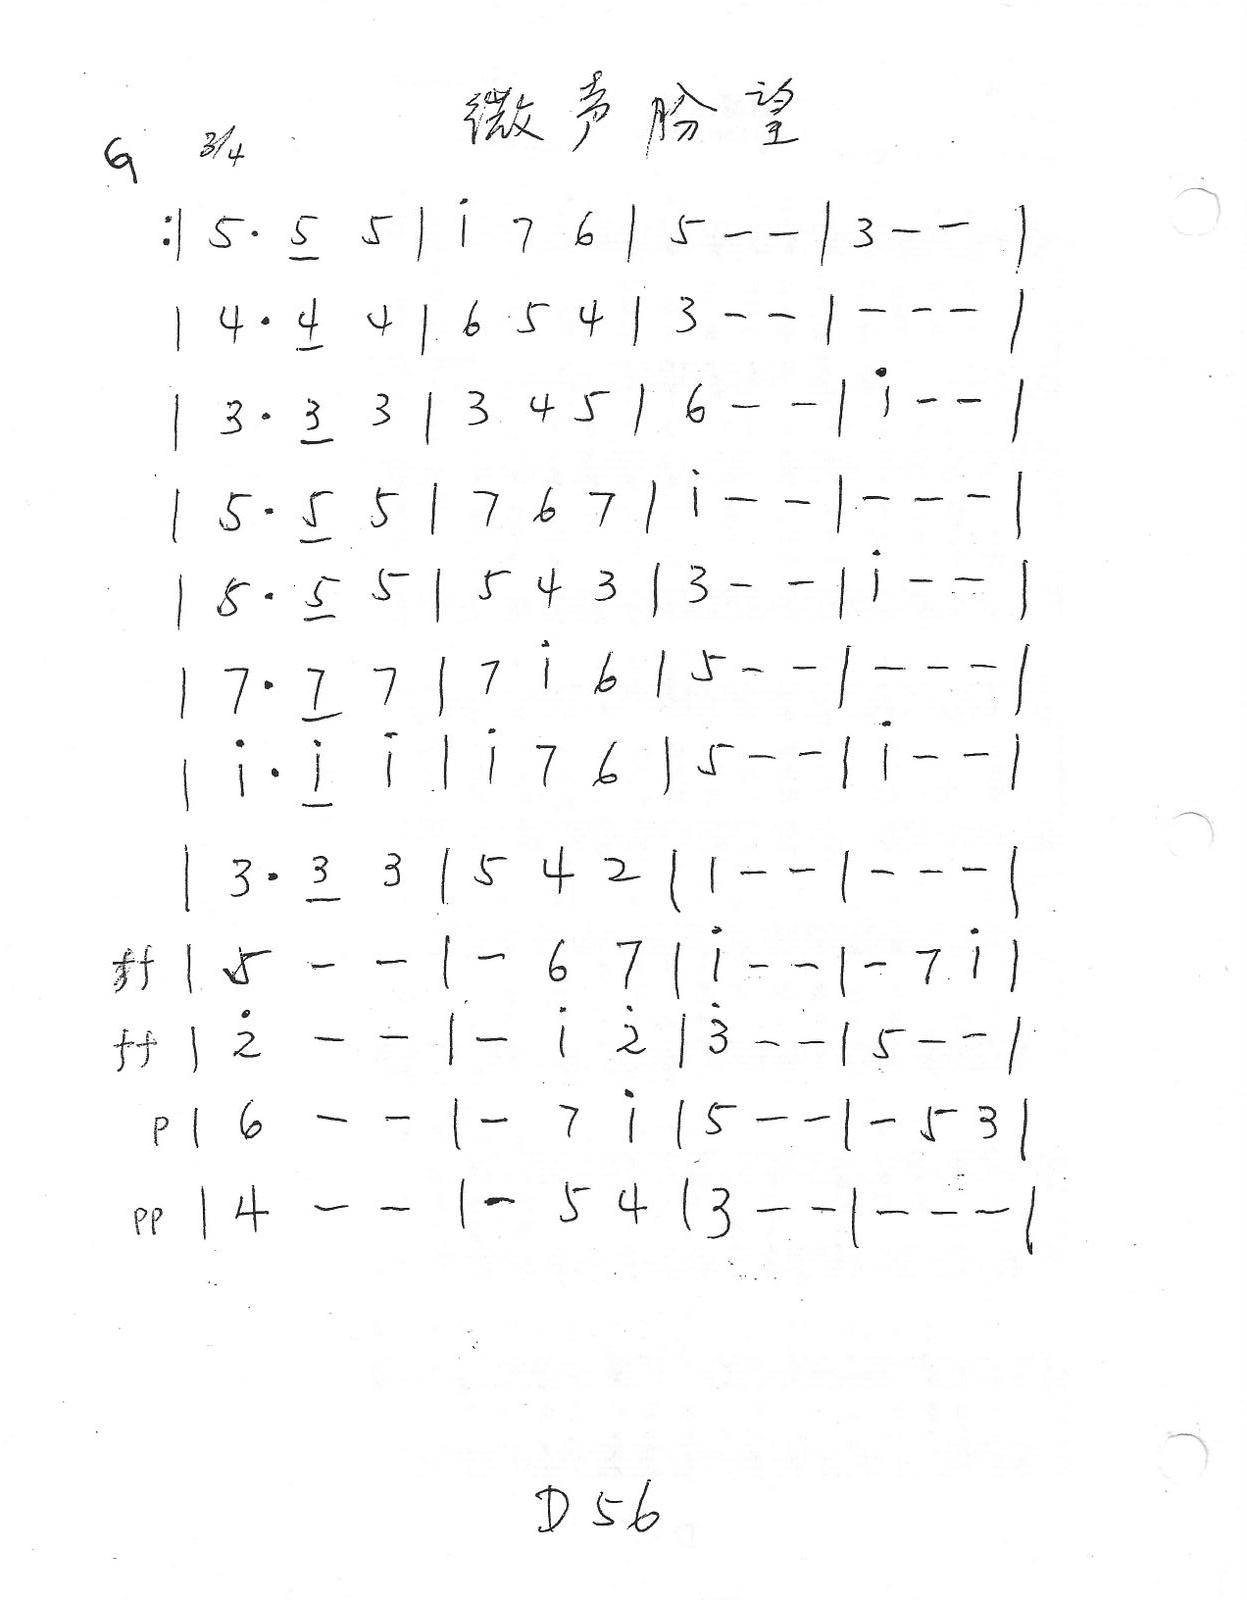 微声盼望
G 3/4
:| 5· 5̲ 5 | i 7 6 | 5 - - | 3 - - |
| 4· 4̲ 4 | 6 5 4 | 3 - - | - - - |
| 3· 3̲ 3 | 3 4 5 | 6 - - | i - - |
| 5· 5̲ 5 | 7 6 7 | i - - | - - - |
| 5· 5̲ 5 | 5 4 3 | 3 - - | i - - |
| 7· 7̲ 7 | 7 i 6 | 5 - - | - - - |
| i· i̲ i | i 7 6 | 5 - - | i - - |
| 3· 3̲ 3 | 5 4 2 | 1 - - | - - - |
ff | 5 - - | - 6 7 | i - - | - 7 i |
ff | 2̇ - - | - i 2̇ | 3̇ - - | 5 - - |
p | 6 - - | - 7 i | 5 - - | - 5 3 |
pp | 4 - - | - 5 4 | 3 - - | - - - |
D 56